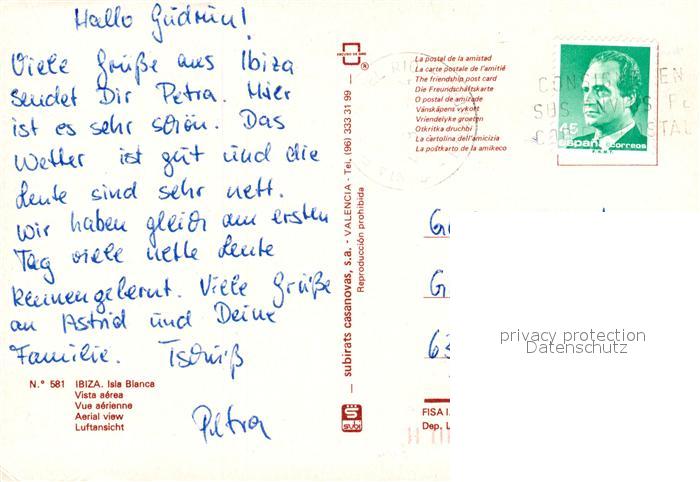 Hallo Gudrun!
Viele Grüße aus Ibiza
sendet Dir Petra. Hier
ist es sehr schön. Das
Wetter ist gut und die
Leute sind sehr nett.
Wir haben gleich am ersten
Tag viele nette Leute
kennengelernt. Viele Grüße
an Astrid und Deine
Familie. Tschüß
Petra
N.° 581 IBIZA. Isla Blanca
Vista aérea
Vue aérienne
Aerial view
Luftansicht
subirats casanovas, s.a. - VALENCIA - Tel. (96) 333 31 99 — ®
Reproducción prohibida
subi
La postal de la amistad
La carte postale de l'amitié
The friendship post card
Die Freundschaftskarte
O postal de amizade
Vänskapens vykort
Vriendelyke groeten
Otkritka druchbi
La cartolina dell'amicizia
La poŝtkarto de la amikeco
45
españa correos
F.N.M.T.
G
G
63
privacy protection
Datenschutz
FISA I.
Dep. L